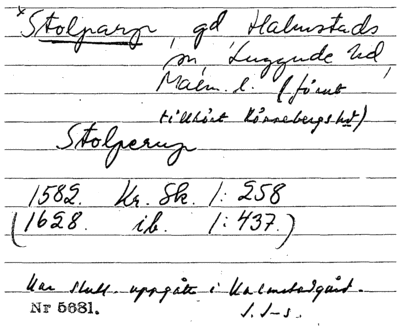 * Stolparp, gd Halmstads
sn, Luggude hd,
Malm. l. (förut
tillhört Rönnebergs hd)
Stolperup
1582. Kr. Sk. 1: 258
(1628. ib. 1: 437.)
Har slutl. uppgått i Halmstadgård.
Nr 5681. J. S-s.